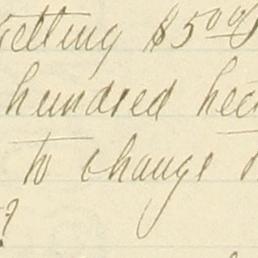 getting $500
hundred
to change
?